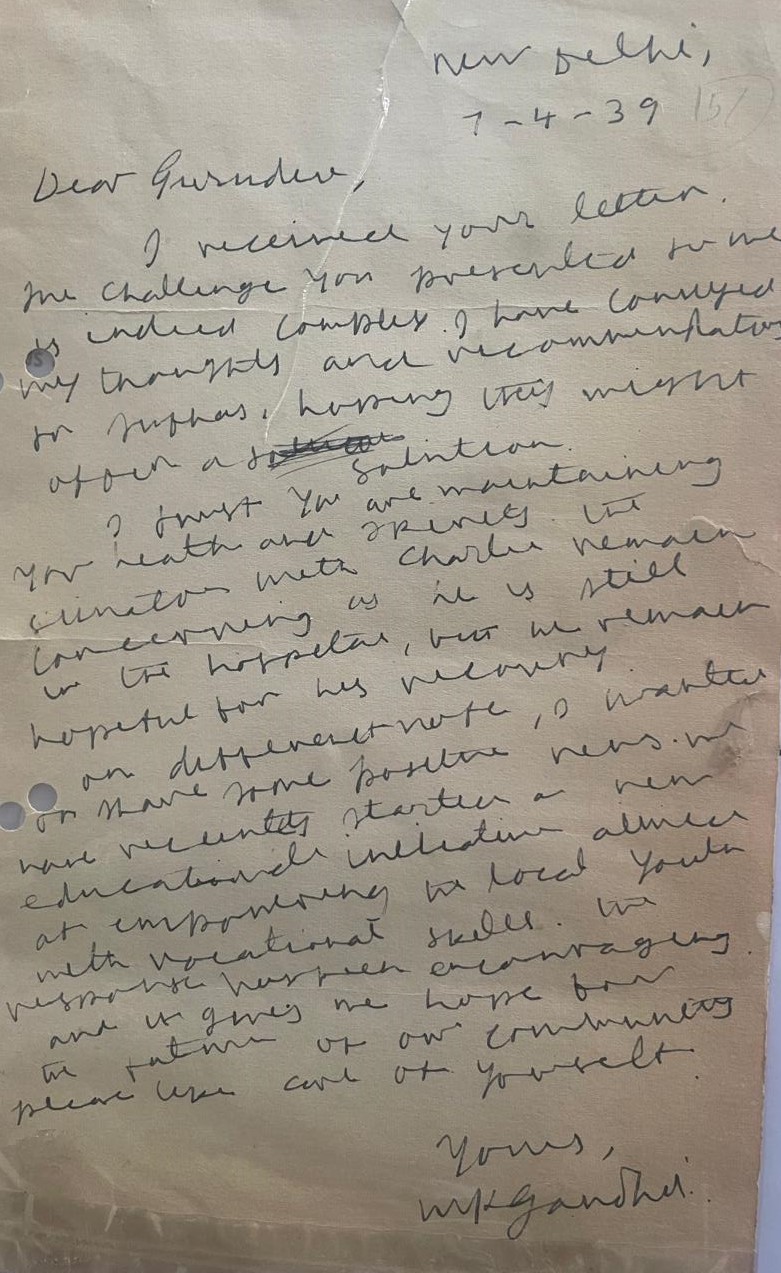 New Delhi,
7-4-39
151
Dear Gurudev,
I received your letter.
The challenge you presented to me
is indeed complex. I have conveyed
my thoughts and recommendations
to Subhas, hoping they might
offer a
solution.
I trust you are maintaining
your health and spirits. The
situation with Charlie remain
concerning as he is still
in the hospital, but we remain
hopeful for his recovery.
on different note, I wanted
to share some positive news. we
have recently started a new
educational initiative aimed
at empowering the local youth
with vocational skills. The
response has been encouraging.
and it gives me hope for
the future of our community
please take care of yourself.
Yours,
MKGandhi.